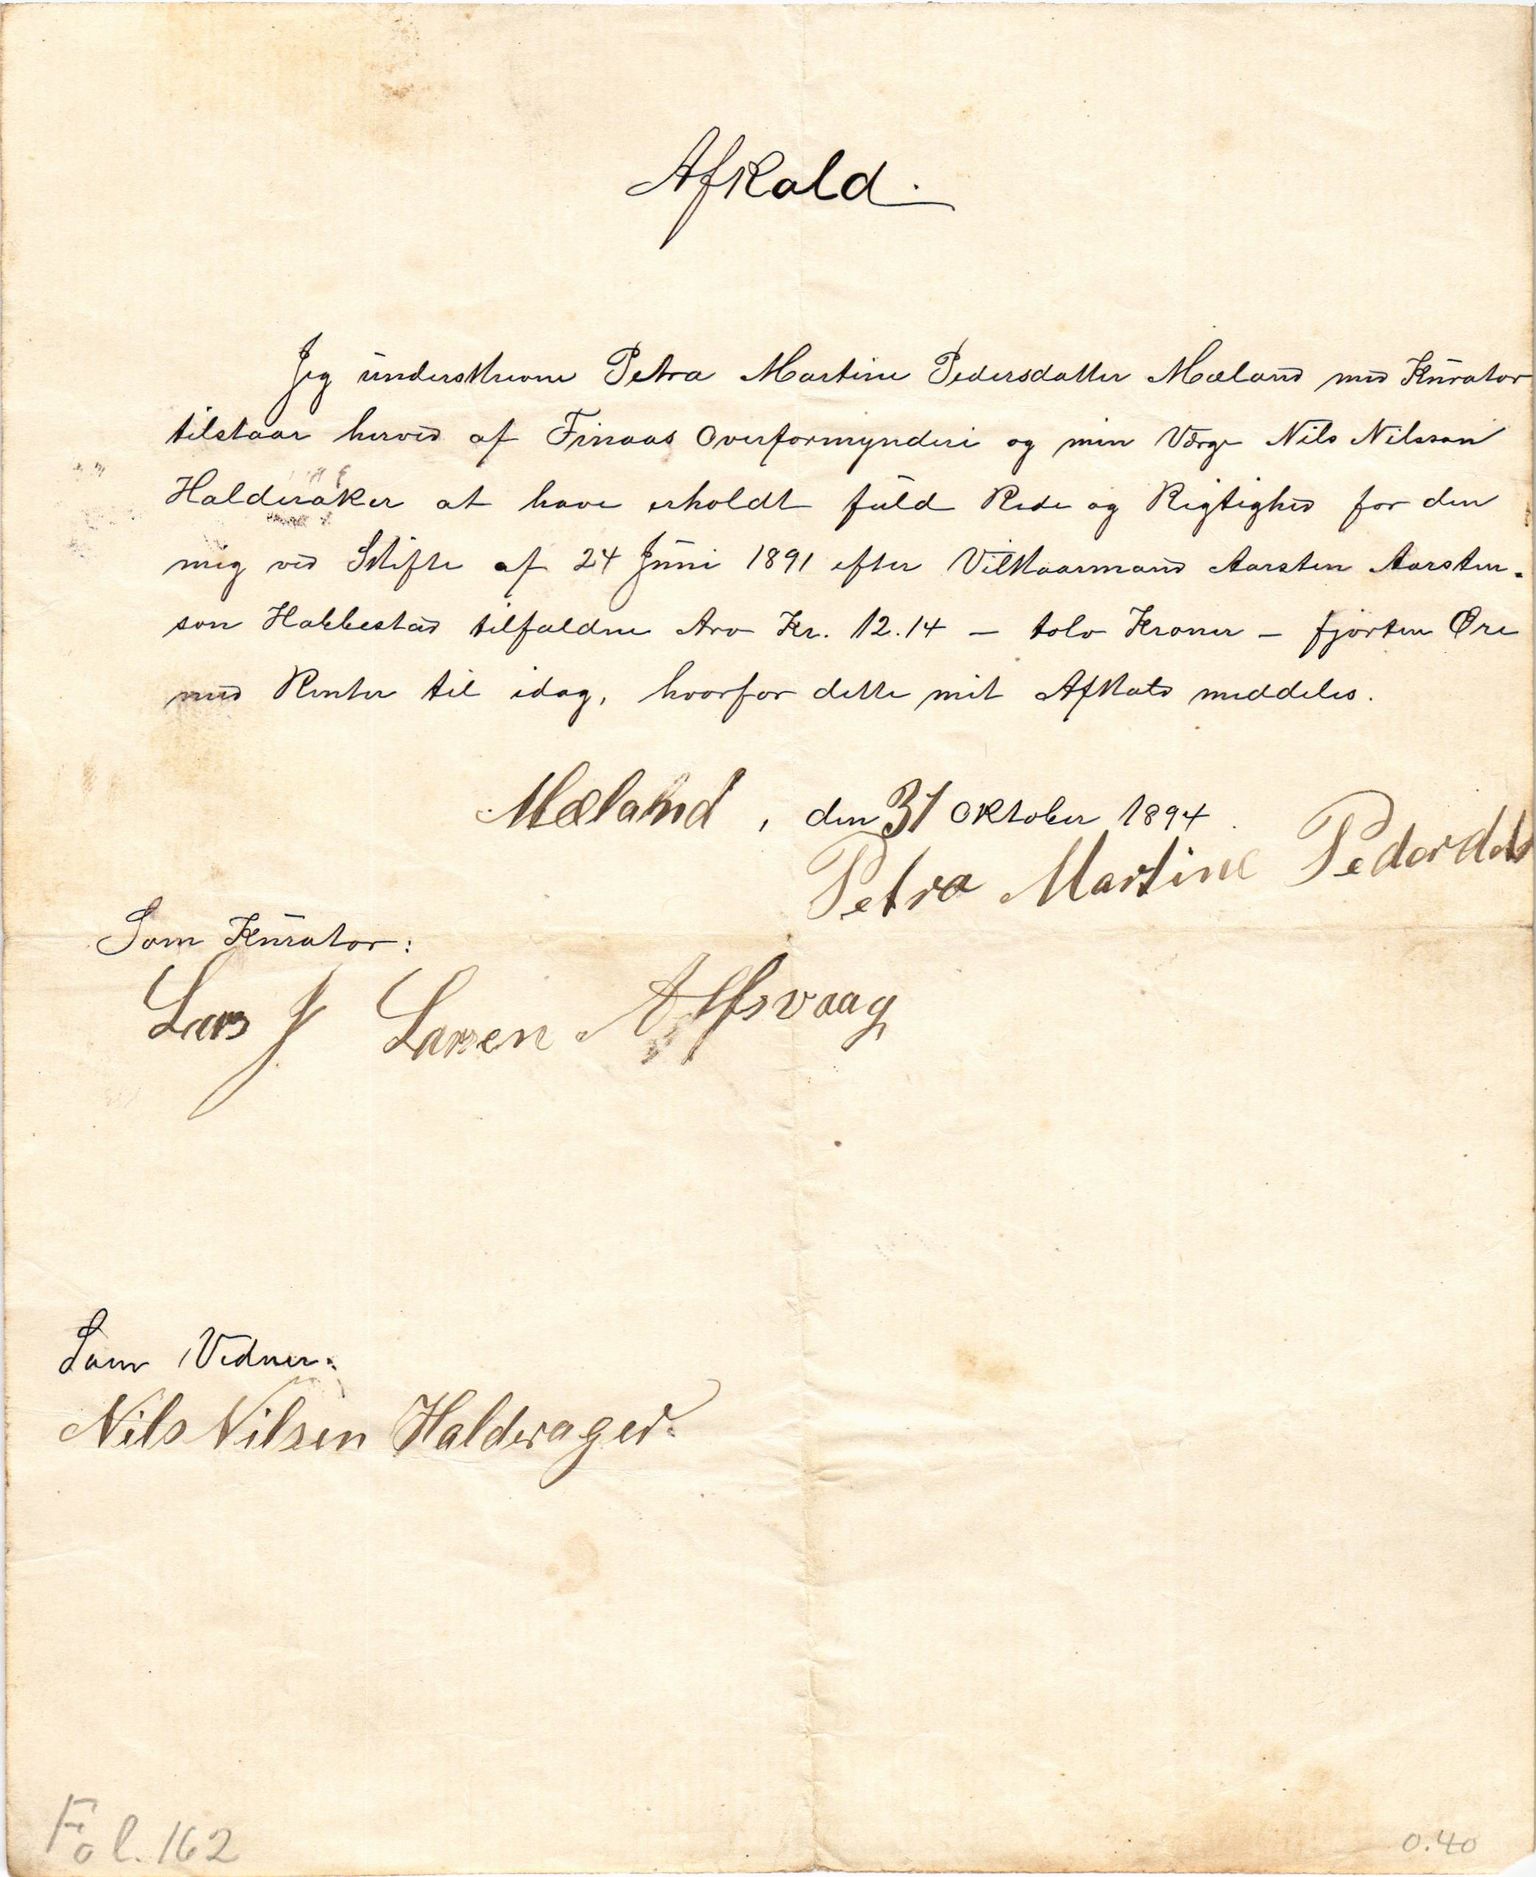 Afkald.
Jeg underskrevne Petra Martine Pedersdatter Mæland med Kurator
tilstaar herved af Finaas Overformynderi og min Værge Nils Nilsson
Halderaker at have erholdt fuld Rede og Rigtighed for den
mig ved Skifte af 24 Juni 1891 efter Vilkaarmand Aarsten Aarsten-
son Hakkestad tilfaldne Arv Kr. 12.14 – tolv Kroner – fjorten Øre
med Renter til idag, hvorfor dette mit Afkald meddeles.
Mæland, den 31 Oktober 1894.
Petra Martine Pederdat
Som Kurator:
Lars J Larsen Alfsvaag
Som Vidner:
Nils Nilsen Halderager.
Fol. 162
0.40